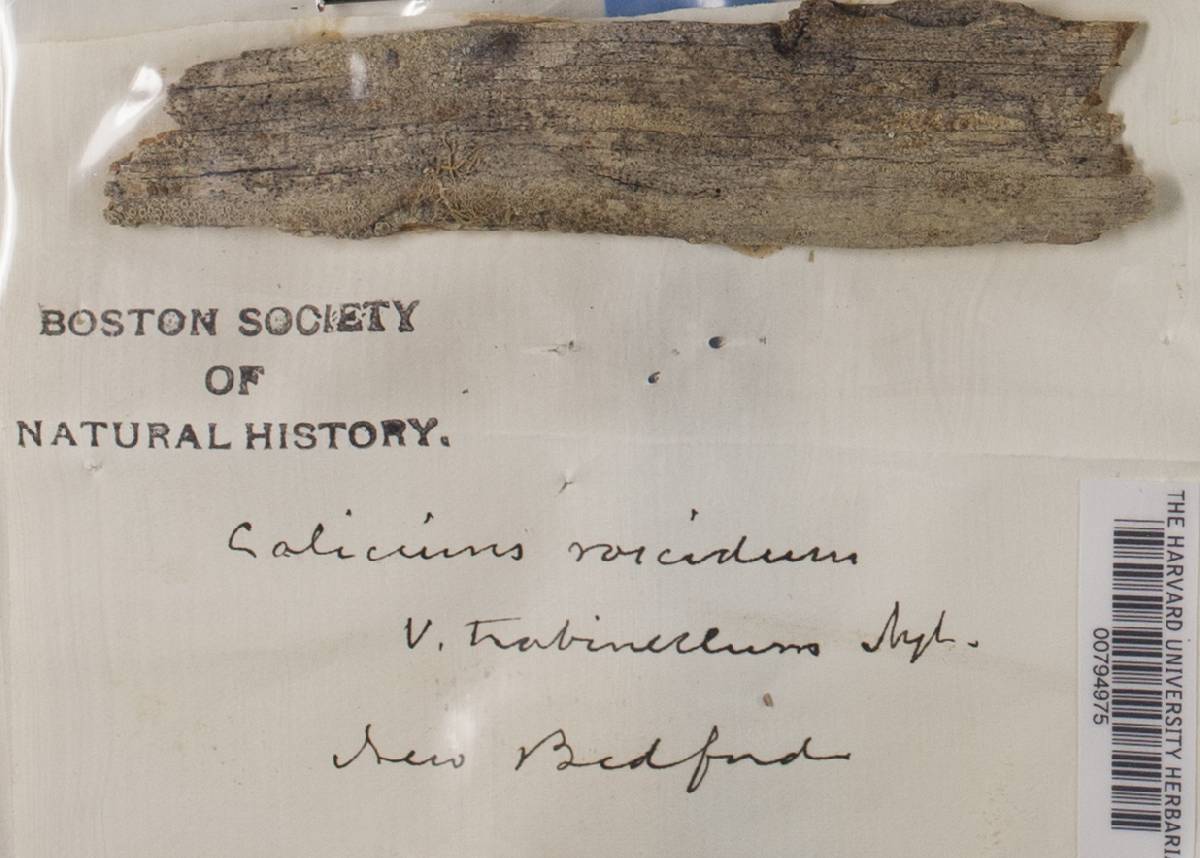 BOSTON SOCIETY
OF
NATURAL HISTORY.
Calicium roscidum
V. trabinellum Nyl.
New Bedford
THE HARVARD UNIVERSITY HERBARI
00794975